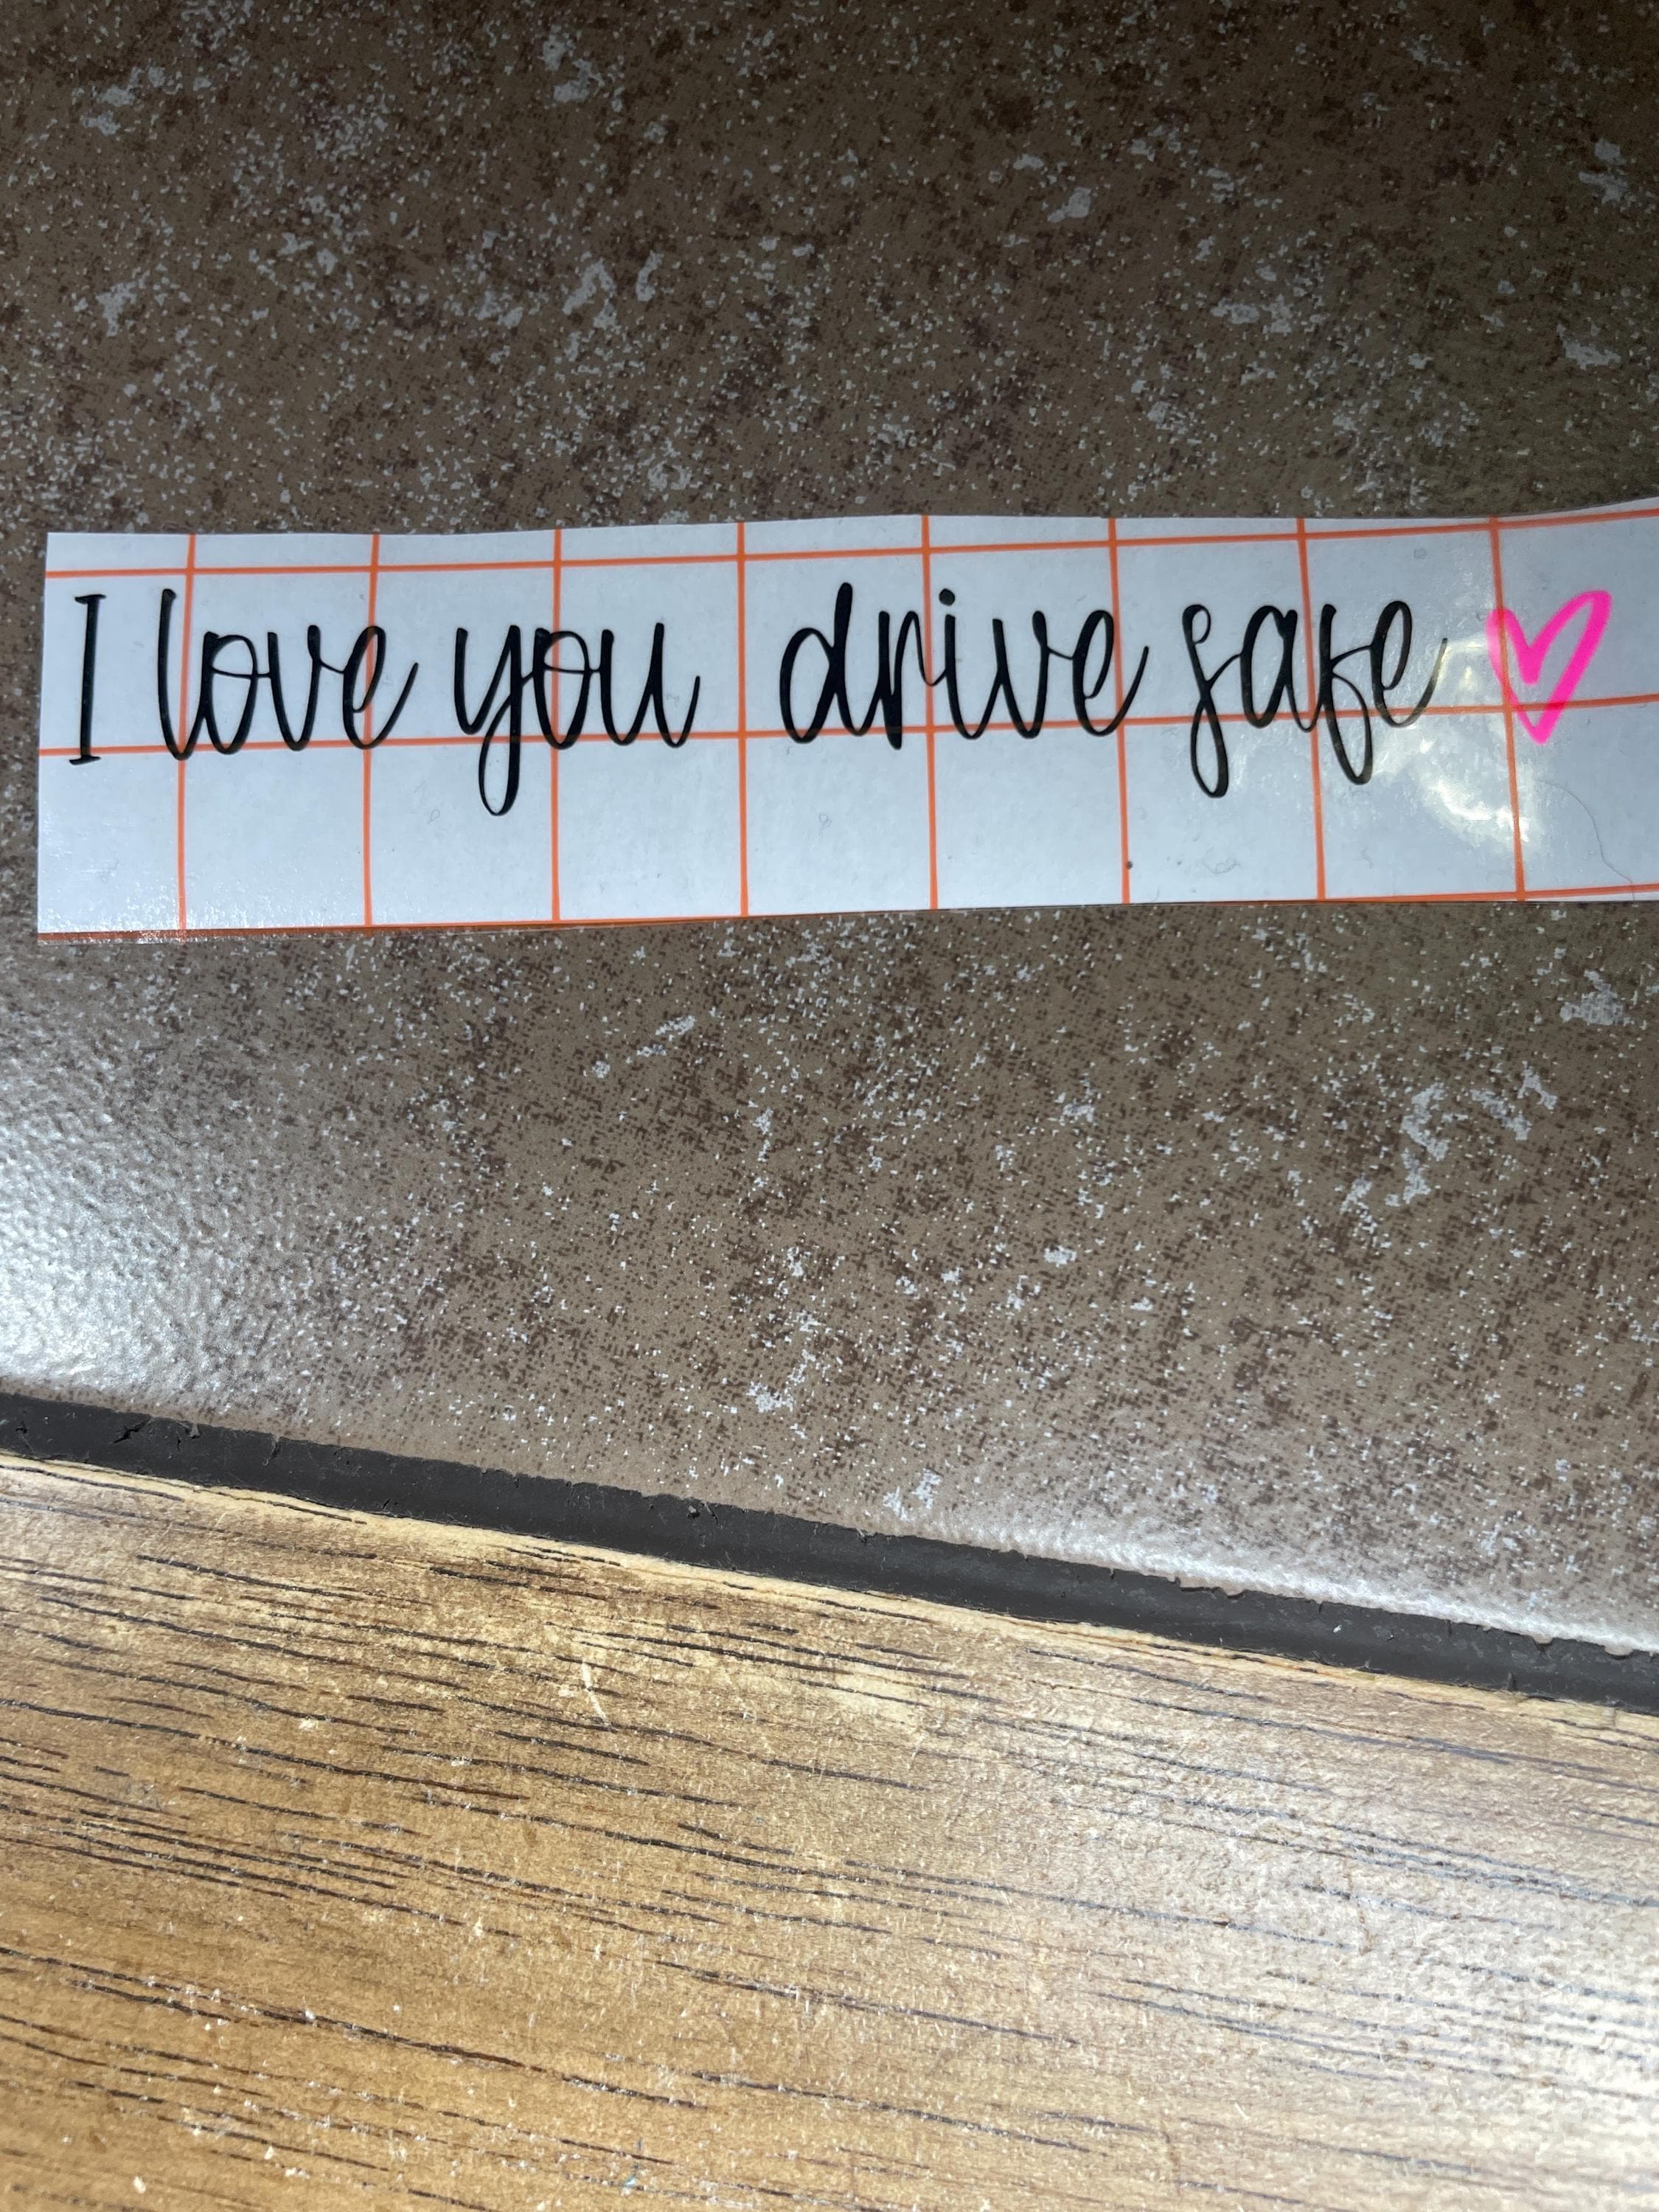 I love you drive safe